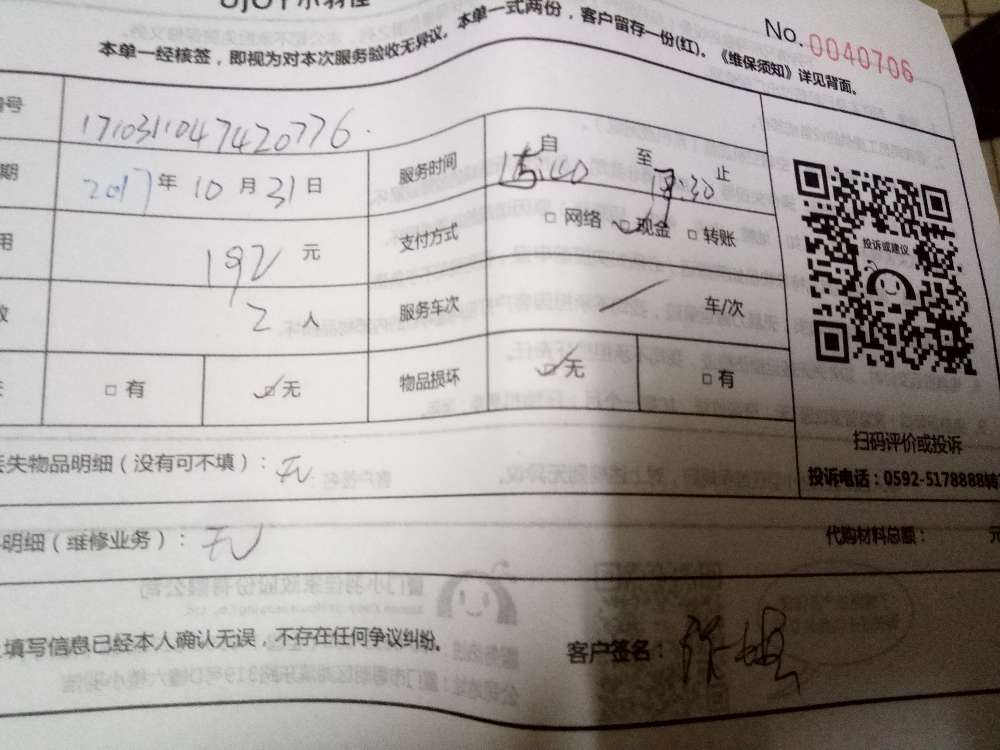 UJOY小羽佳
No. 0040706
本单一经核签，即视为对本次服务验收无异议。本单一式两份，客户留存一份(红)。《维保须知》详见背面。
号 171031104742077６
期 2017年10月31日 服务时间 自 至 止
用 192元 支付方式 □网络 ☑现金 □转账
数 2人 服务车次 / 车/次
□有 ☑无 物品损坏 ☑无 □有
投诉或建议
扫码评价或投诉
投诉电话：0592-5178888转
失物品明细（没有可不填）：无
明细（维修业务）：无 代购材料总额： 元
填写信息已经本人确认无误，不存在任何争议纠纷。 客户签名：